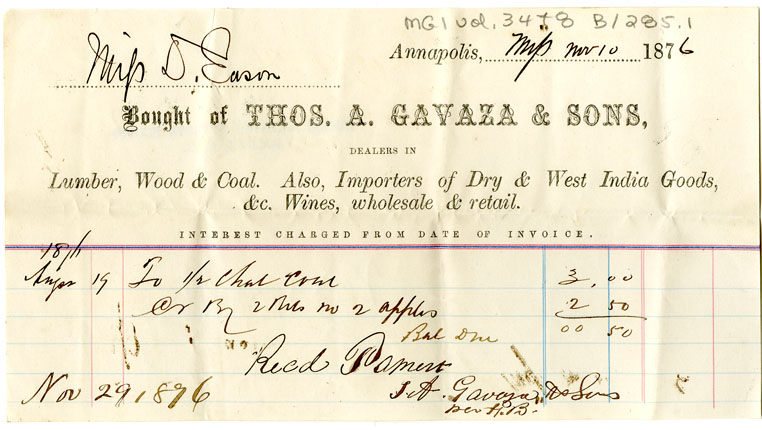 MG1 vol. 3478 B/285.1
Annapolis, Nov 10 1876
Miss D. Eason
Bought of THOS. A. GAVAZA & SONS,
DEALERS IN
Lumber, Wood & Coal. Also, Importers of Dry & West India Goods,
&c. Wines, wholesale & retail.
INTEREST CHARGED FROM DATE OF INVOICE.
187
19 To 1/2 Chal Coal 3,00
Cr By 2 no 2 apples 2 50
Bal Due 00 50
Recd Pament
Nov 29 1876 T. A. Gavaza & Sons
per H.B.